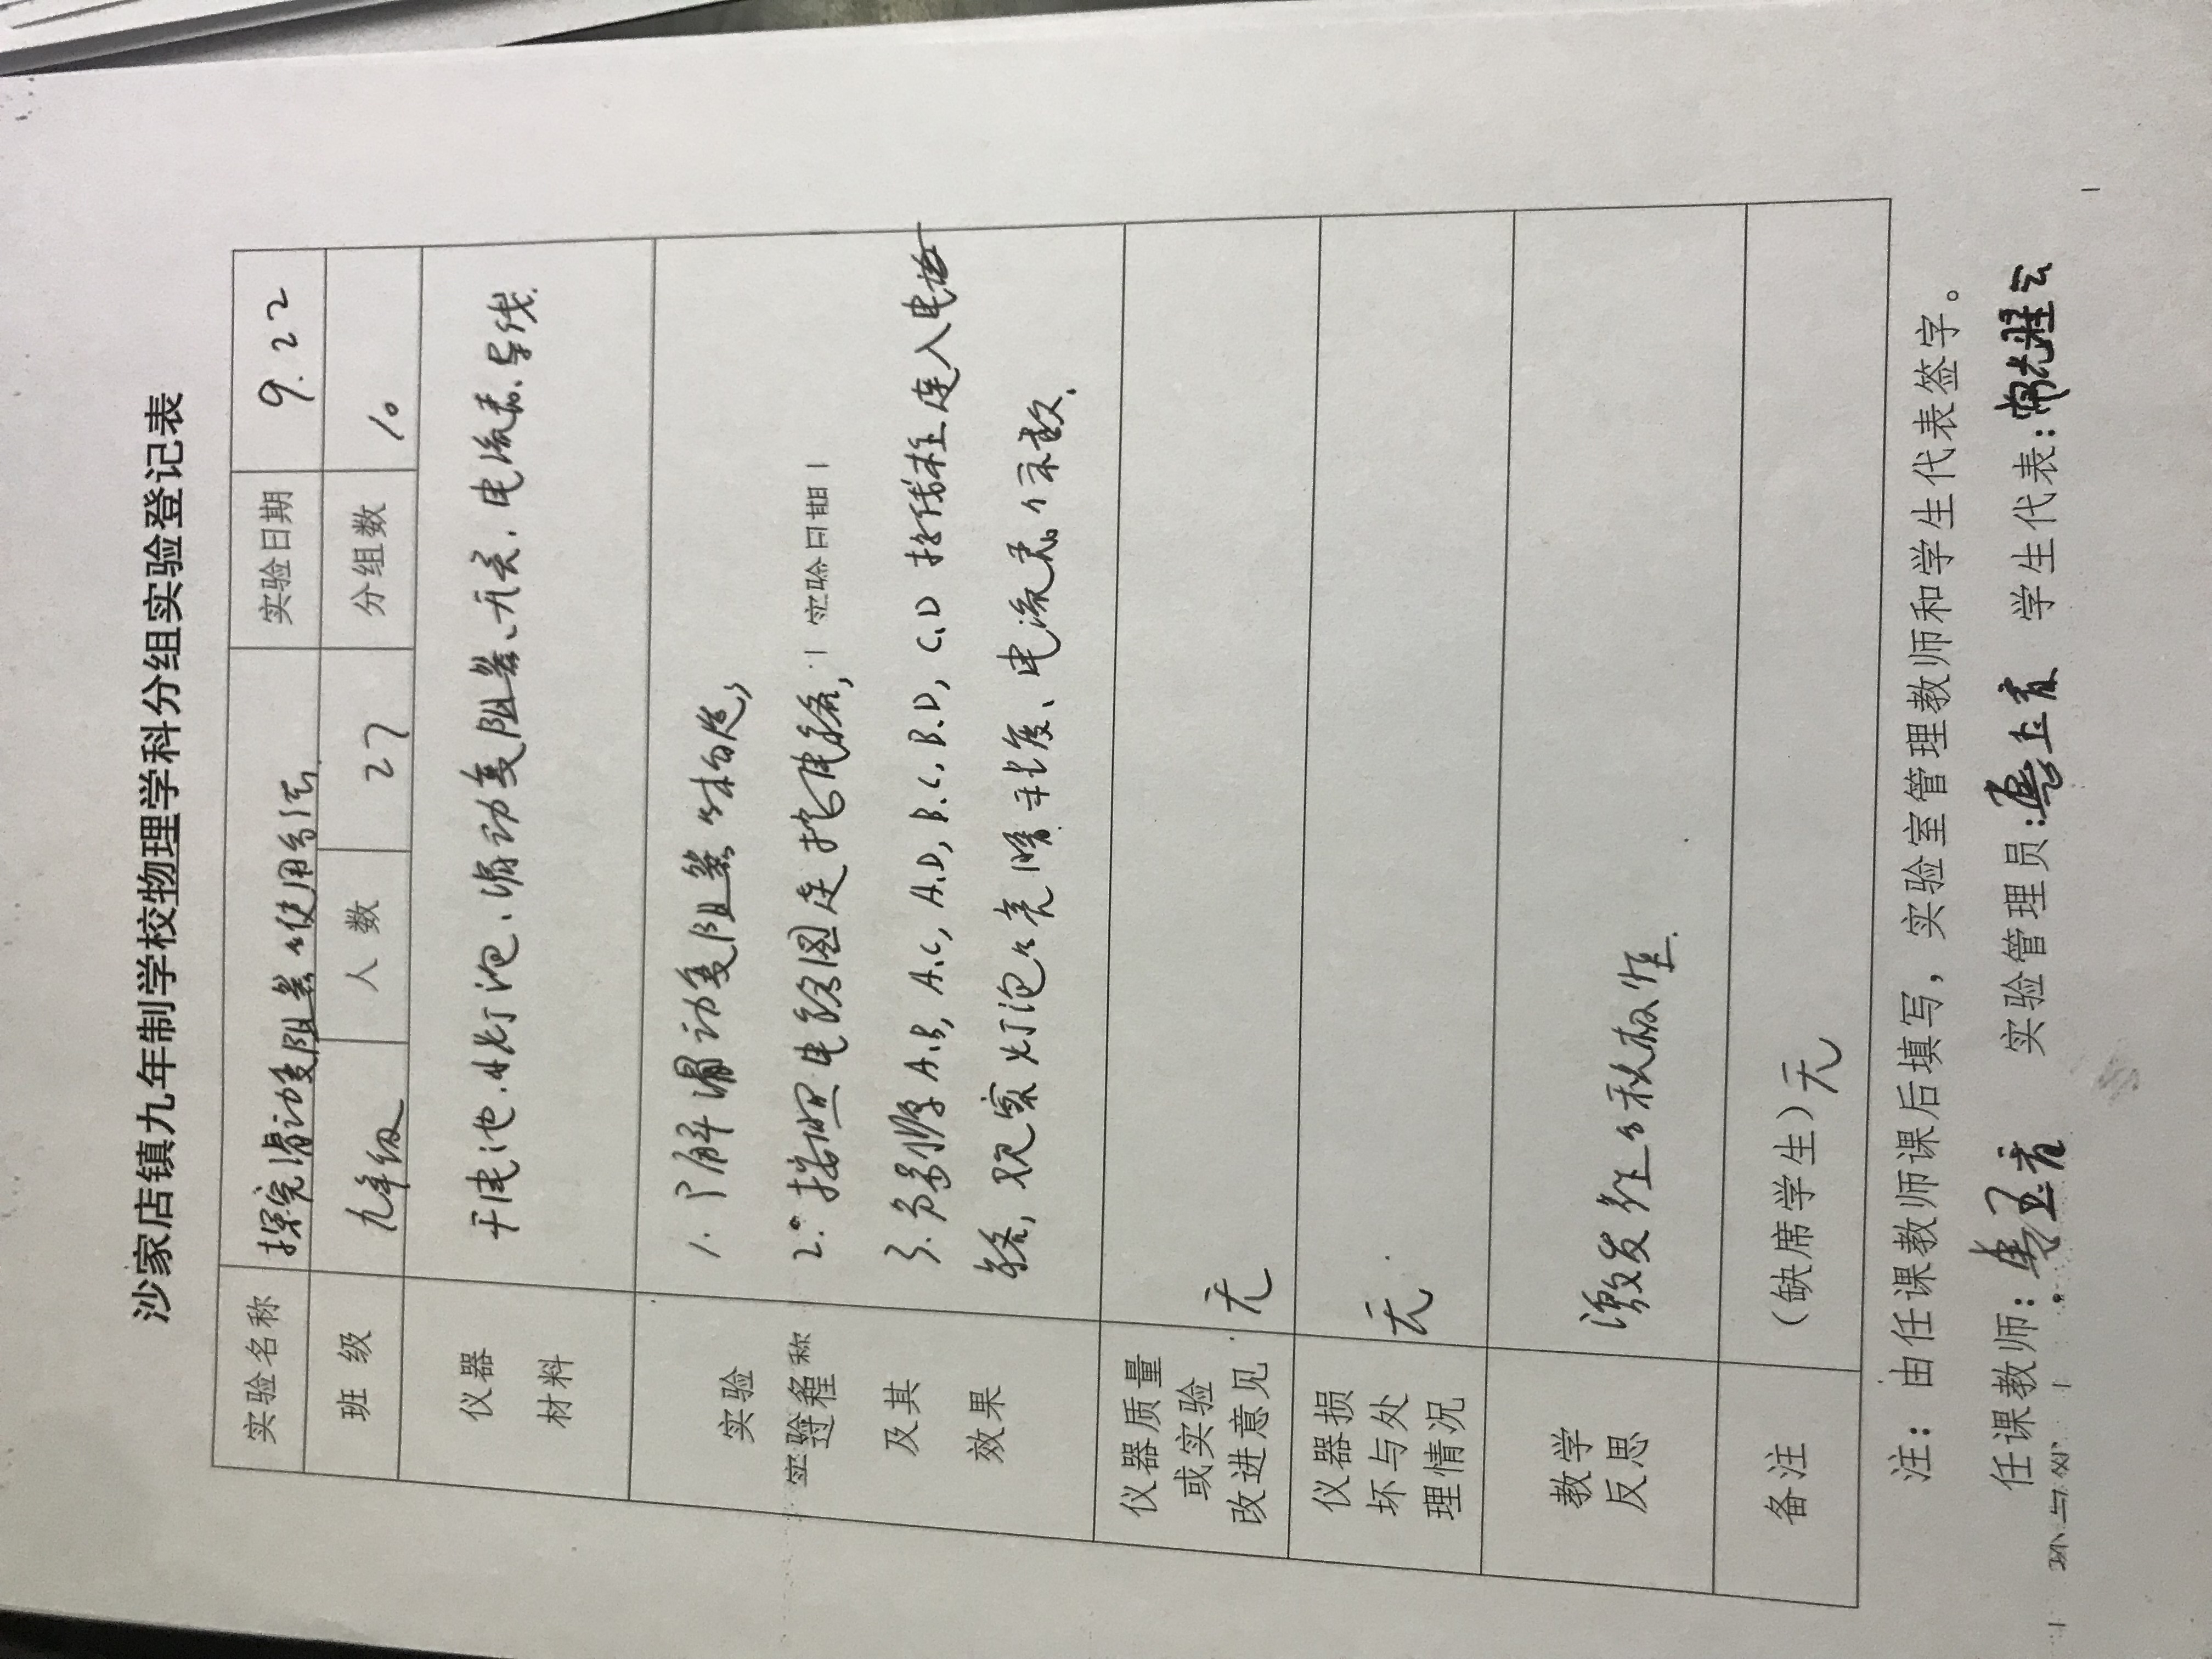 沙家店镇九年制学校物理学科分组实验登记表
实验名称 探究滑动变阻器的使用方法 实验日期 9.22
班 级 九年级 人 数 27 分组数 10
仪器
材料
干电池、小灯泡、滑动变阻器、开关、电流表、导线.
实验
过程
及其
效果
1. 了解滑动变阻器的构造,
2. 按照电路图连接电路,
3. 分别将A.B, A.C, A.D, B.C, B.D, C.D 接线柱连入电
路, 观察灯泡的亮暗程度、电流表的示数.
仪器质量
或实验
改进意见
无
仪器损
坏与处
理情况
无
教学
反思
激发红的积极性.
备注
（缺席学生）无
注：由任课教师课后填写，实验室管理教师和学生代表签字。
任课教师： 实验管理员： 学生代表：